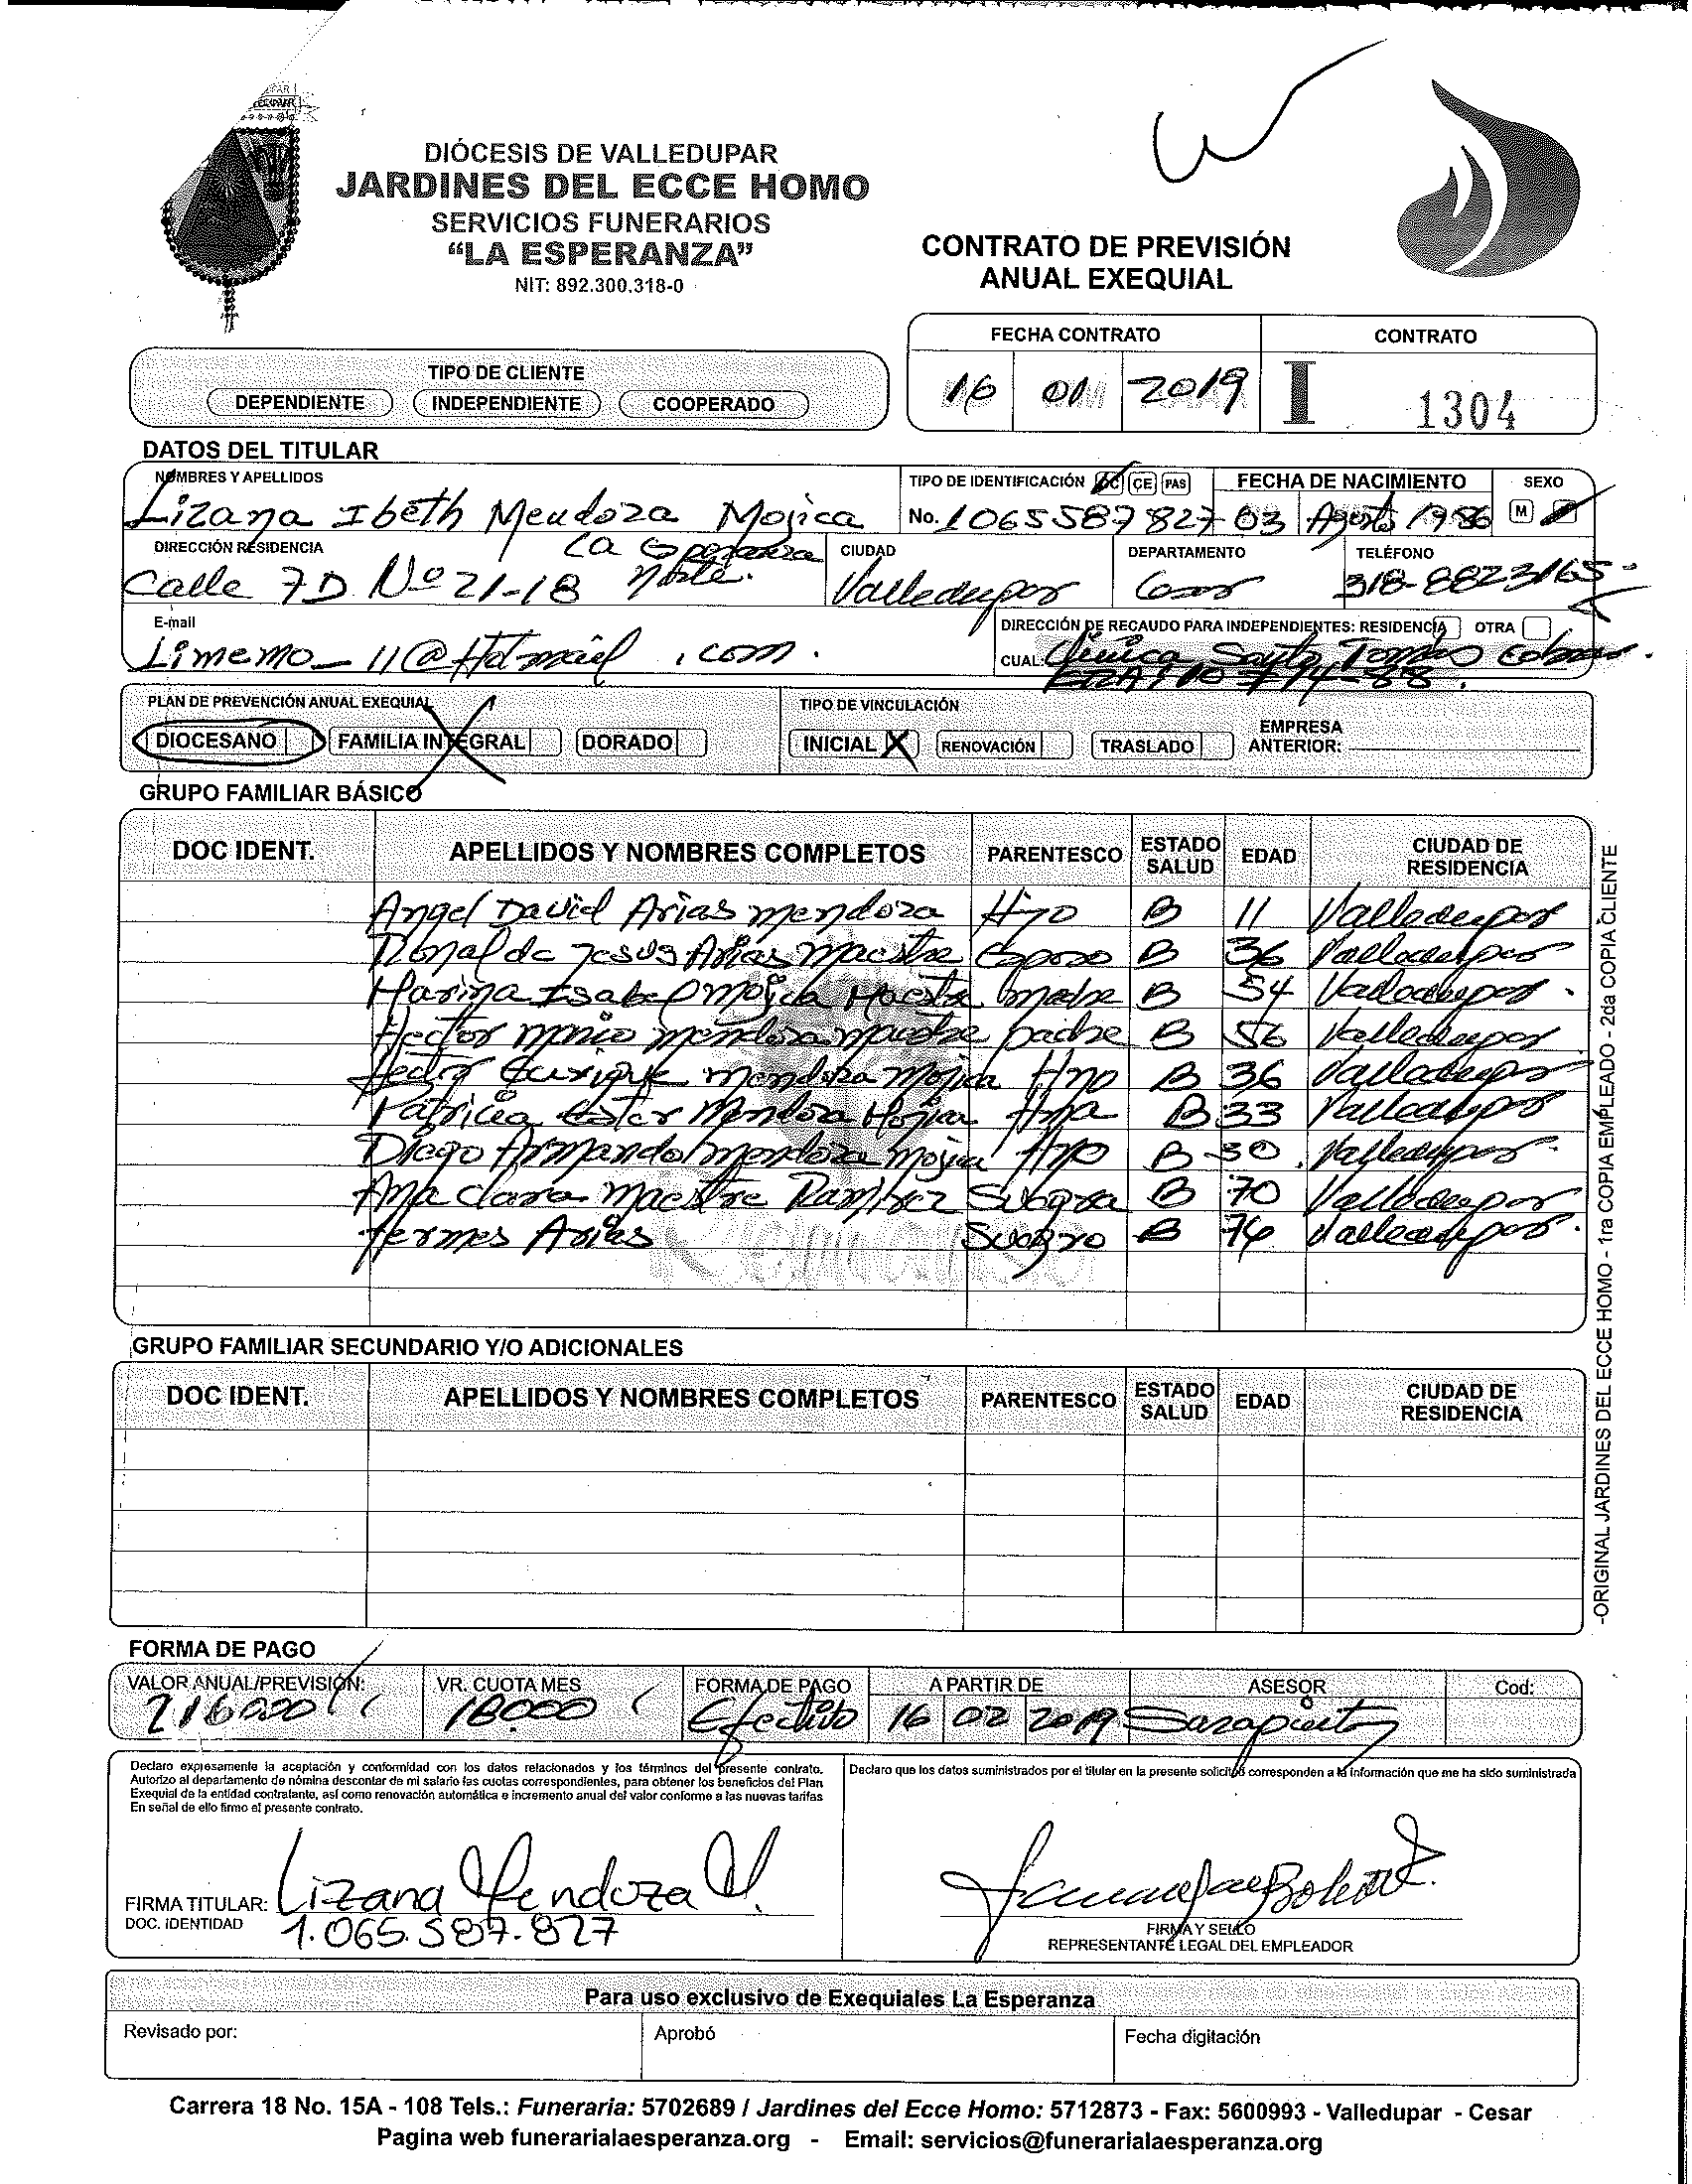 DIÓCESIS DE VALLEDUPAR
JARDINES DEL ECCE HOMO
SERVICIOS FUNERARIOS
“LA ESPERANZA”
NIT: 892.300.318-0
CONTRATO DE PREVISIÓN
ANUAL EXEQUIAL
FECHA CONTRATO CONTRATO
16 01 2019 I 1304
TIPO DE CLIENTE
DEPENDIENTE INDEPENDIENTE COOPERADO
DATOS DEL TITULAR
NOMBRES Y APELLIDOS TIPO DE IDENTIFICACIÓN CC CE PAS FECHA DE NACIMIENTO SEXO
Lizana Ibeth Mendoza Mojica No. 1065587827 03 Agosto 1986 M
DIRECCIÓN RESIDENCIA La Esperanza CIUDAD DEPARTAMENTO TELÉFONO
Calle 7D Nº 21-18 Norte. Valledupar Cesar 318-8823165
E-mail DIRECCIÓN DE RECAUDO PARA INDEPENDIENTES: RESIDENCIA OTRA
Limemo_11@Hotmail .com. CUAL: Clinica Santo Tomas
PLAN DE PREVENCIÓN ANUAL EXEQUIAL TIPO DE VINCULACIÓN
DIOCESANO FAMILIA INTEGRAL DORADO INICIAL X RENOVACIÓN TRASLADO EMPRESA ANTERIOR:
GRUPO FAMILIAR BÁSICO
DOC IDENT. APELLIDOS Y NOMBRES COMPLETOS PARENTESCO ESTADO SALUD EDAD CIUDAD DE RESIDENCIA
Angel David Arias mendoza Hijo B 11 Valledupar
Ronaldo Jesus Arias maestre Esposo B 36 Valledupar
Marina Isabel mojica Maestre madre B 54 Valledupar
Hector mario mendoza maestre padre B 56 Valledupar
Hector Enrique mendoza mojica Hno B 36 Valledupar
Patricia Ester Mendoza Mojica Hna B 33 Valledupar
Diego Armando mendoza mojica Hno B 30 Valledupar
Ana clara maestre Ramirez Suegra B 70 Valledupar
Hermes Arias Suegro B 74 Valledupar
GRUPO FAMILIAR SECUNDARIO Y/O ADICIONALES
DOC IDENT. APELLIDOS Y NOMBRES COMPLETOS PARENTESCO ESTADO SALUD EDAD CIUDAD DE RESIDENCIA
FORMA DE PAGO
VALOR ANUAL/PREVISIÓN: VR. CUOTA MES FORMA DE PAGO A PARTIR DE ASESOR Cod:
216000 18000 Efectivo 16 02 2019
Declaro expresamente la aceptación y conformidad con los datos relacionados y los términos del presente contrato.
Autorizo al departamento de nómina descontar de mi salario las cuotas correspondientes, para obtener los beneficios del Plan
Exequial de la entidad contratante, así como renovación automática e incremento anual del valor conforme a las nuevas tarifas
En señal de ello firmo el presente contrato.
Declaro que los datos suministrados por el titular en la presente solicitud corresponden a la información que me ha sido suministrada
FIRMA TITULAR: Lizana Mendoza M.
DOC. IDENTIDAD 1.065.587.827
FIRMA Y SELLO
REPRESENTANTE LEGAL DEL EMPLEADOR
Para uso exclusivo de Exequiales La Esperanza
Revisado por: Aprobó Fecha digitación
Carrera 18 No. 15A - 108 Tels.: Funeraria: 5702689 / Jardines del Ecce Homo: 5712873 - Fax: 5600993 - Valledupar - Cesar
Pagina web funerarialaesperanza.org - Email: servicios@funerarialaesperanza.org
-ORIGINAL JARDINES DEL ECCE HOMO - 1ra COPIA EMPLEADO - 2da COPIA CLIENTE